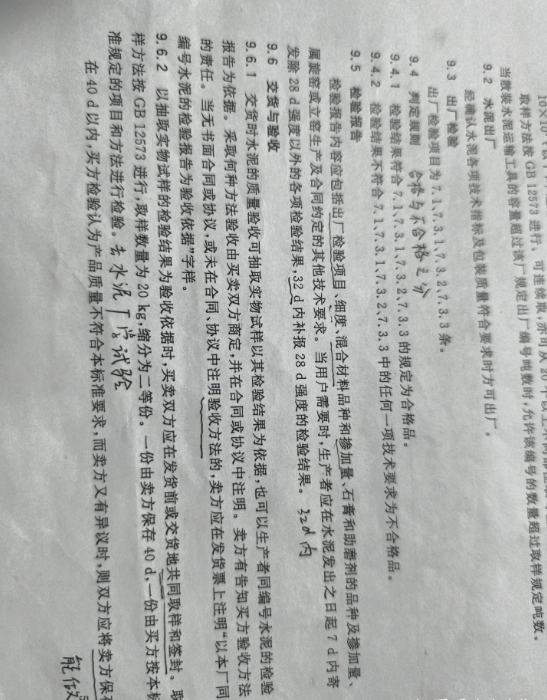 取样方法按 GB 12573 进行。可连续取,亦可从 20 个以上不同部位
当散装水泥运输工具的容量超过该厂规定出厂编号吨数时,允许该编号的数量超过取样规定吨数。
9.2 水泥出厂
经确认水泥各项技术指标及包装质量符合要求时方可出厂。
9.3 出厂检验
出厂检验项目为 7.1、7.3.1、7.3.2、7.3.3 条。
9.4 判定规则 合格与不合格之分
9.4.1 检验结果符合 7.1、7.3.1、7.3.2、7.3.3 的规定为合格品。
9.4.2 检验结果不符合 7.1、7.3.1、7.3.2、7.3.3 中的任何一项技术要求为不合格品。
9.5 检验报告
检验报告内容应包括出厂检验项目、细度、混合材料品种和掺加量、石膏和助磨剂的品种及掺加量、
属旋窑或立窑生产及合同约定的其他技术要求。当用户需要时,生产者应在水泥发出之日起 7 d 内寄
发除 28 d 强度以外的各项检验结果,32 d 内补报 28 d 强度的检验结果。 32d内
9.6 交货与验收
9.6.1 交货时水泥的质量验收可抽取实物试样以其检验结果为依据,也可以生产者同编号水泥的检验
报告为依据。采取何种方法验收由买卖双方商定,并在合同或协议中注明。卖方有告知买方验收方法
的责任。当无书面合同或协议,或未在合同、协议中注明验收方法的,卖方应在发货票上注明“以本厂同
编号水泥的检验报告为验收依据”字样。
9.6.2 以抽取实物试样的检验结果为验收依据时,买卖双方应在发货前或交货地共同取样和签封。取
样方法按 GB 12573 进行,取样数量为 20 kg,缩分为二等份。一份由卖方保存 40 d,一份由买方按本标
准规定的项目和方法进行检验。去水泥厂试验
在 40 d 以内,买方检验认为产品质量不符合本标准要求,而卖方又有异议时,则双方应将卖方保